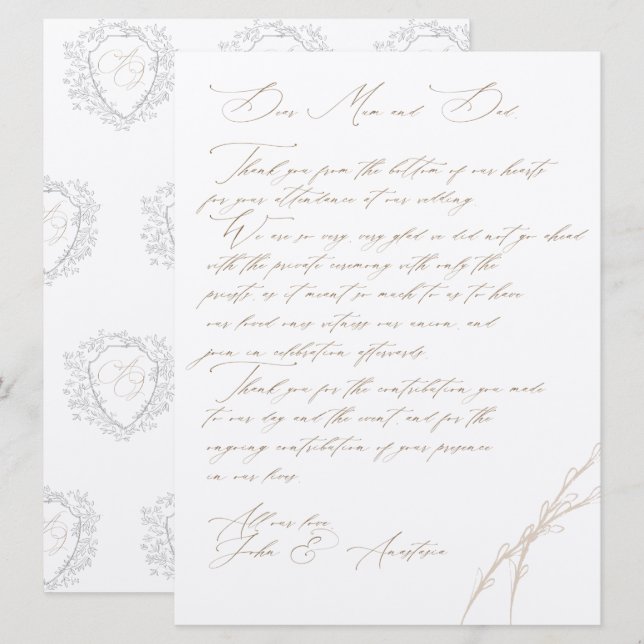 Dear Mum and Dad,
Thank you from the bottom of our hearts
for your attendance at our wedding.
We are so very, very glad we did not go ahead
with the private ceremony with only the
priests, as it meant so much to us to have
our loved ones witness our union, and
join in celebration afterwards.
Thank you for the contribution you made
to our day and the event, and for the
ongoing contribution of your presence
in our lives.
All our love
John & Anastasia